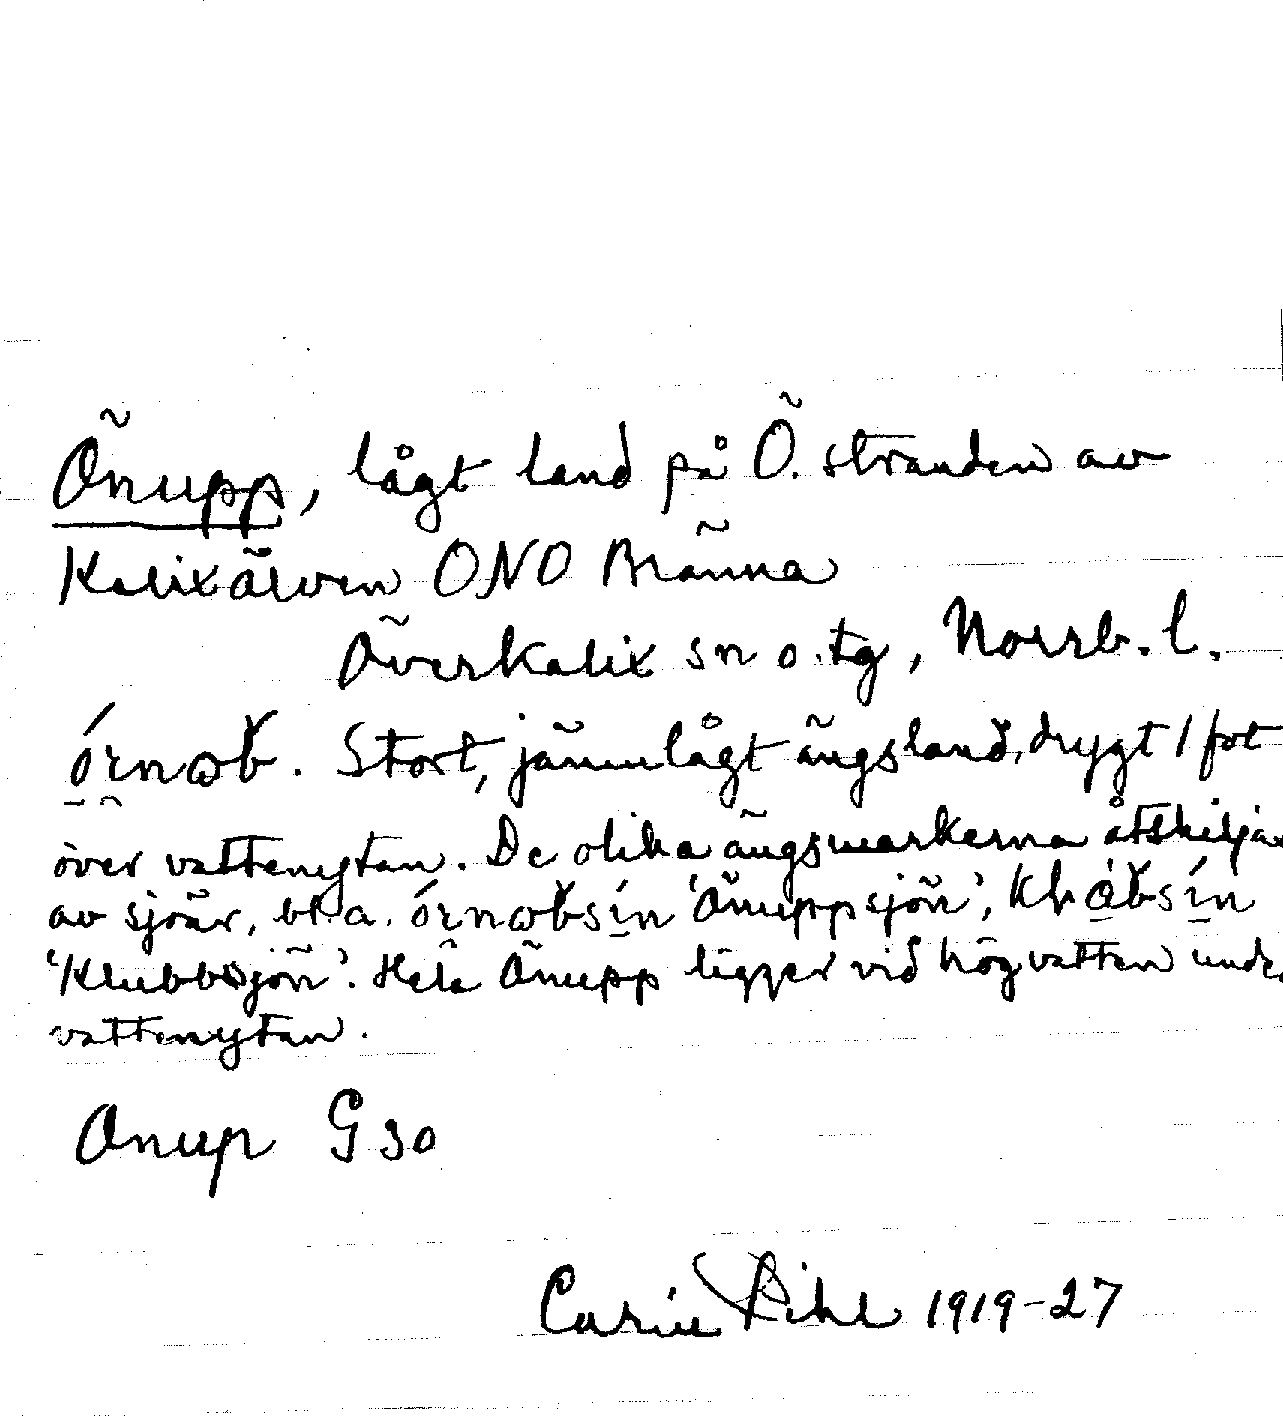 Önupp, lågt land på Ö. stranden av
Kalixälven ONO Bränna
Överkalix sn o. tg, Norrb. l.
Stort, jämnlågt ängsland, drygt 1 fot
över vattenytan. De olika ängsmarkerna åtskiljas
av sjöar, bl. a. 'Önuppsjön',
'Klubbsjön'. Hela Önupp ligger vid högvatten under
vattenytan.
Önup G 30
Carin Pihl 1919-27